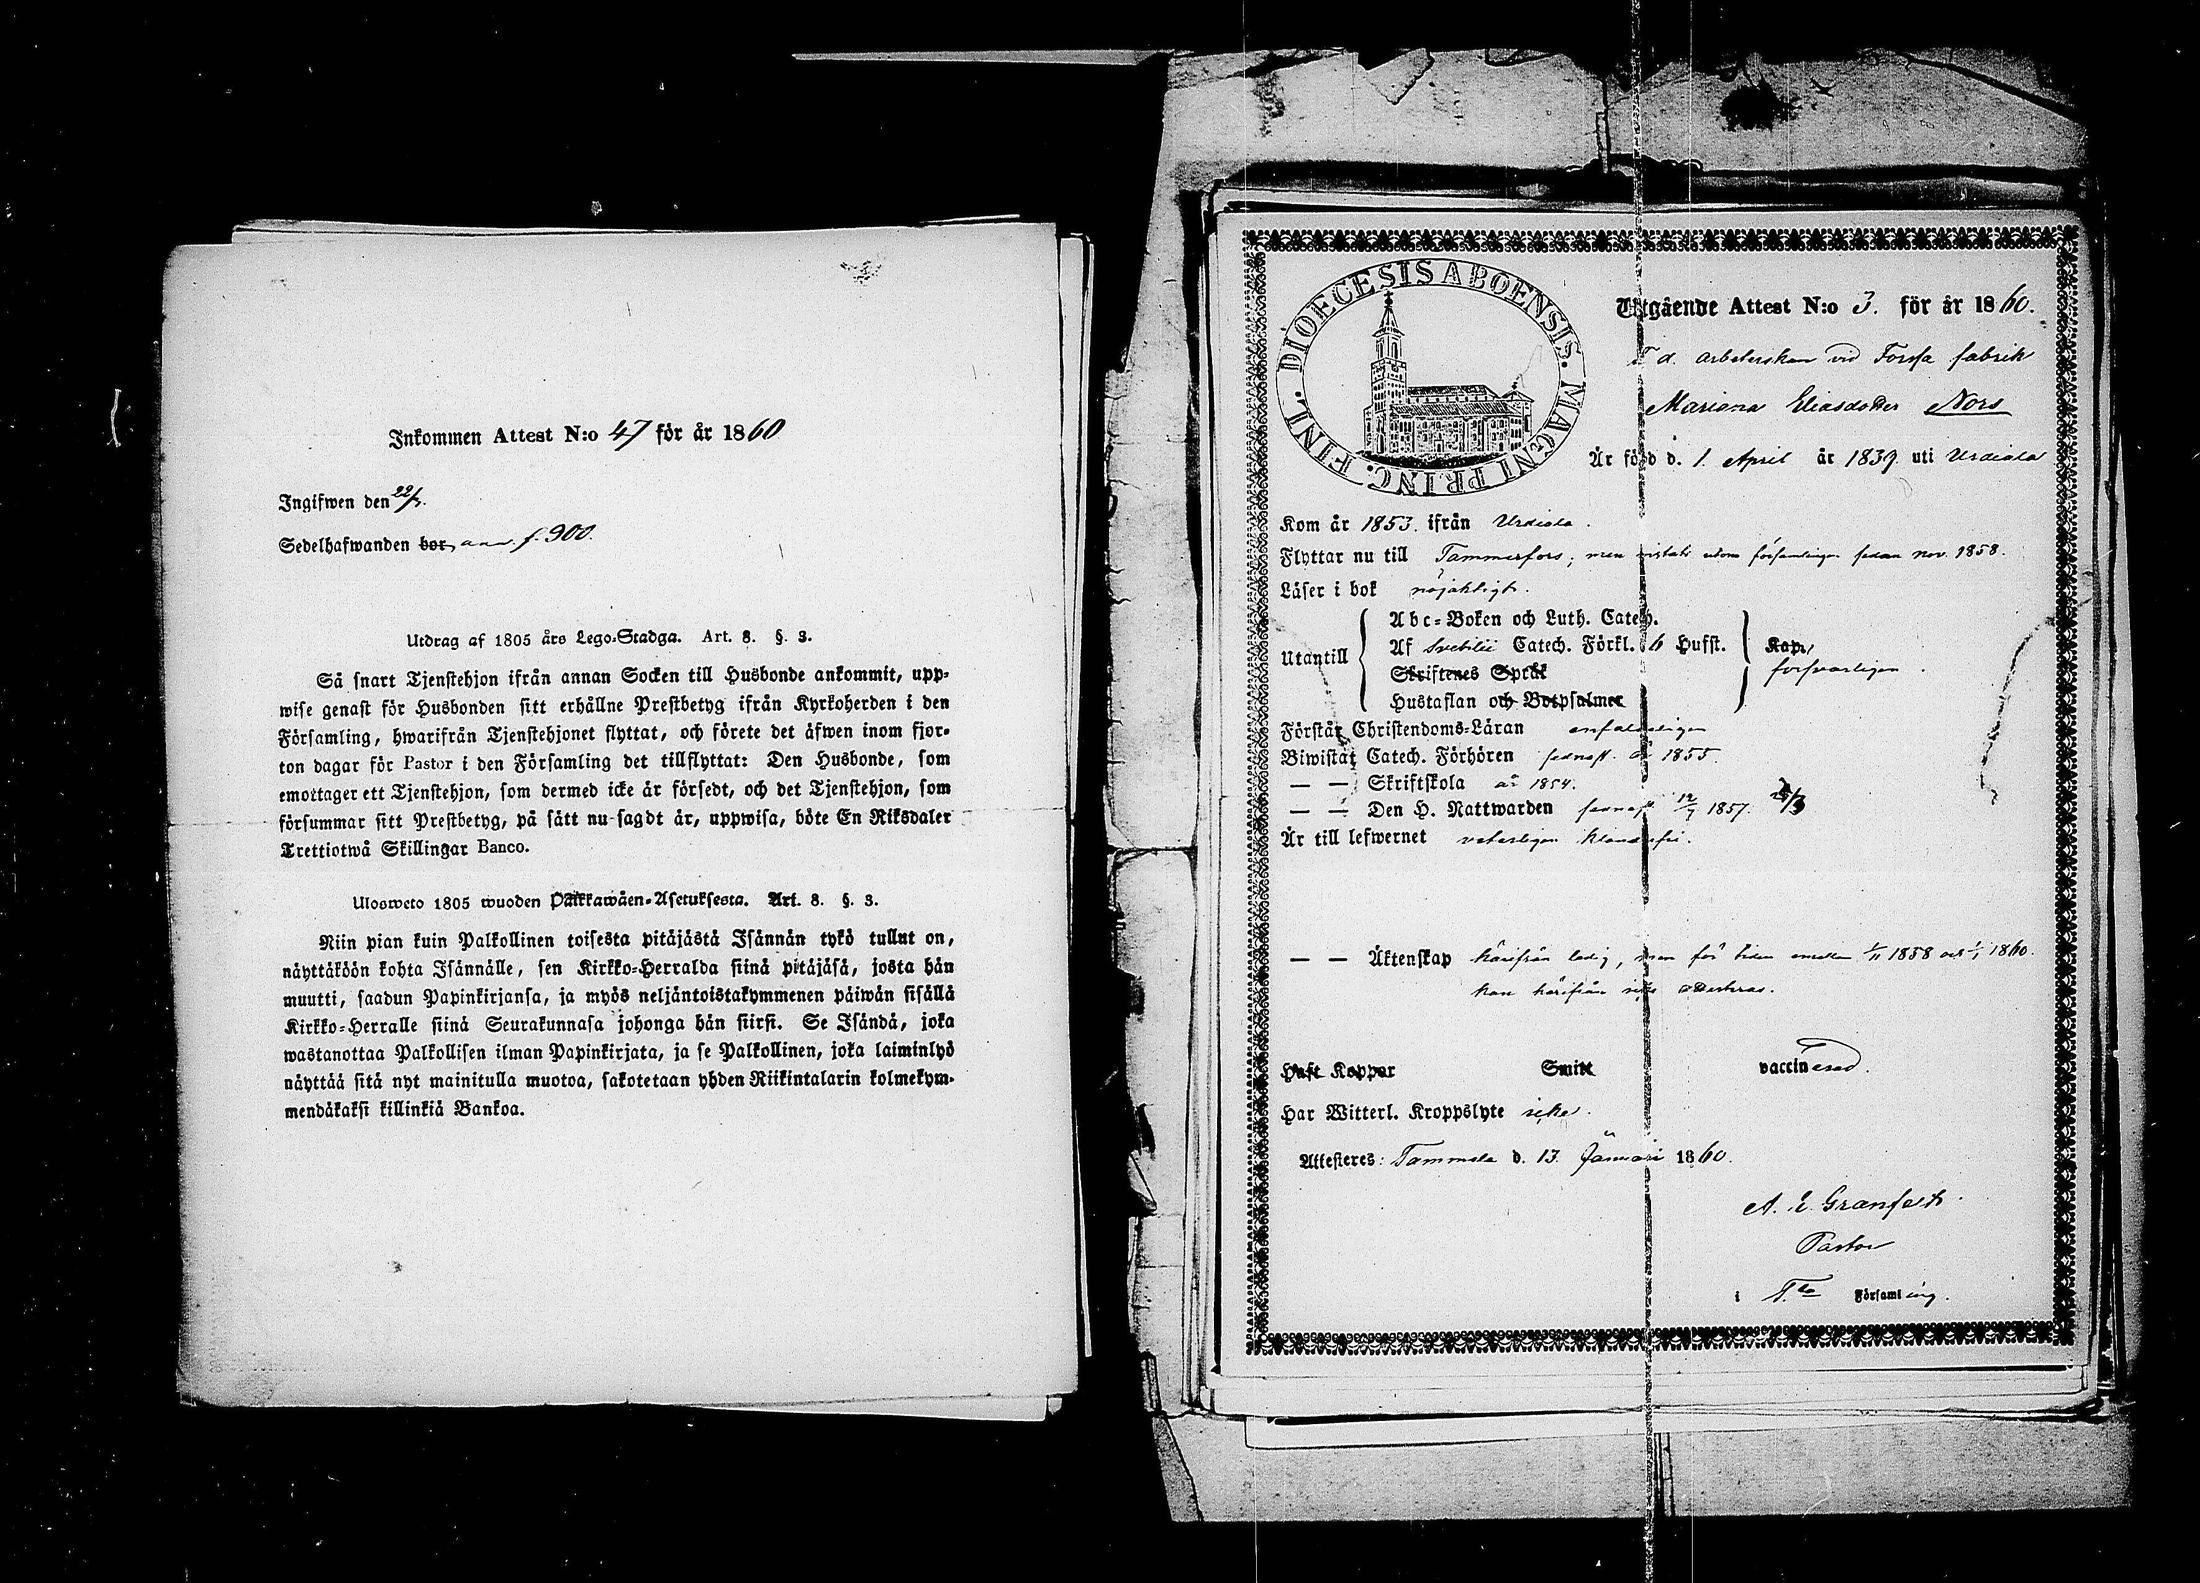 Inkommen Attest N:o 47 för år 1860
Ingifwen den 22/3.
Sedelhafwanden bor, ann. f. 900.
Utdrag af 1805 års Lego-Stadga. Art. 8. §. 3.
Så snart Tjenstehjon ifrån annan Socken till Husbonde ankommit, upp-
wise genast för Husbonden sitt erhållne Prestbetyg ifrån Kyrkoherden i den
Församling, hwarifrån Tjenstehjonet flyttat, och förete det äfwen inom fjor-
ton dagar för Pastor i den Församling det tillflyttat: Den Husbonde, som
emottager ett Tjenstehjon, som dermed icke är försedt, och det Tjenstehjon, som
försummar sitt Prestbetyg, på sätt nu sagdt är, uppwisa, böte En Riksdaler
Trettiotwå Skillingar Banco.
Ulosweto 1805 wuoden Palkkawäen-Asetuksesta. Art. 8. §. 3.
Niin pian kuin Palkollinen toisesta pitäjästä Isännän tykö tullut on,
näyttäköön kohta Isännälle, sen Kirkko-Herralda siinä pitäjäsä, josta hän
muutti, saadun Papinkirjansa, ja myös neljäntoistakymmenen päiwän sisällä
Kirkko-Herralle siinä Seurakunnasa johonga hän siirsi. Se Isändä, joka
wastanottaa Palkollisen ilman Papinkirjata, ja se Palkollinen, joka laiminlyö
näyttää sitä nyt mainitulla muotoa, sakotetaan yhden Riikintalarin kolmekym-
mendäkaksi killinkiä Bankoa.
DIOECESIS ABOENSIS. MAGNI PRINC. FINL.
Utgående Attest N:o 3. för år 1860.
F d. arbeterskan vid Forssa fabrik
Mariana Eliasdotter Nors
Är född d. 1. April år 1839. uti Urdiala
Kom år 1853. ifrån Urdiala.
Flyttar nu till Tammerfors; men vistats utom församlingen sedan nov. 1858.
Läser i bok nöjaktigt.
Utantill
Abc-Boken och Luth. Catech.
Af Svebilii Catech. Förkl. 6 Hufst.
Skriftenes Språk
Hustaflan och Botpsalmer
Kap.
försvarligen.
Förstår Christendoms-Läran enfaldeligen
Biwistat Catech. Förhören sednast år 1855.
— — Skriftskola år 1854.
— — Den H. Nattwarden sednast 12/7 1857. 25/3
Är till lefwernet veterligen klanderfri.
— — Äktenskap härifrån ledig, men för tiden emellan 1/11 1858 och 1/1 1860.
kan härifrån icke attesteras.
Haft Koppor Smitt vaccinerad.
Har Witterl. Kroppslyte icke.
Attesteres: Tammela d. 13. Januari 1860.
A. E. Granfelt.
Pastor
i T:la Församling.